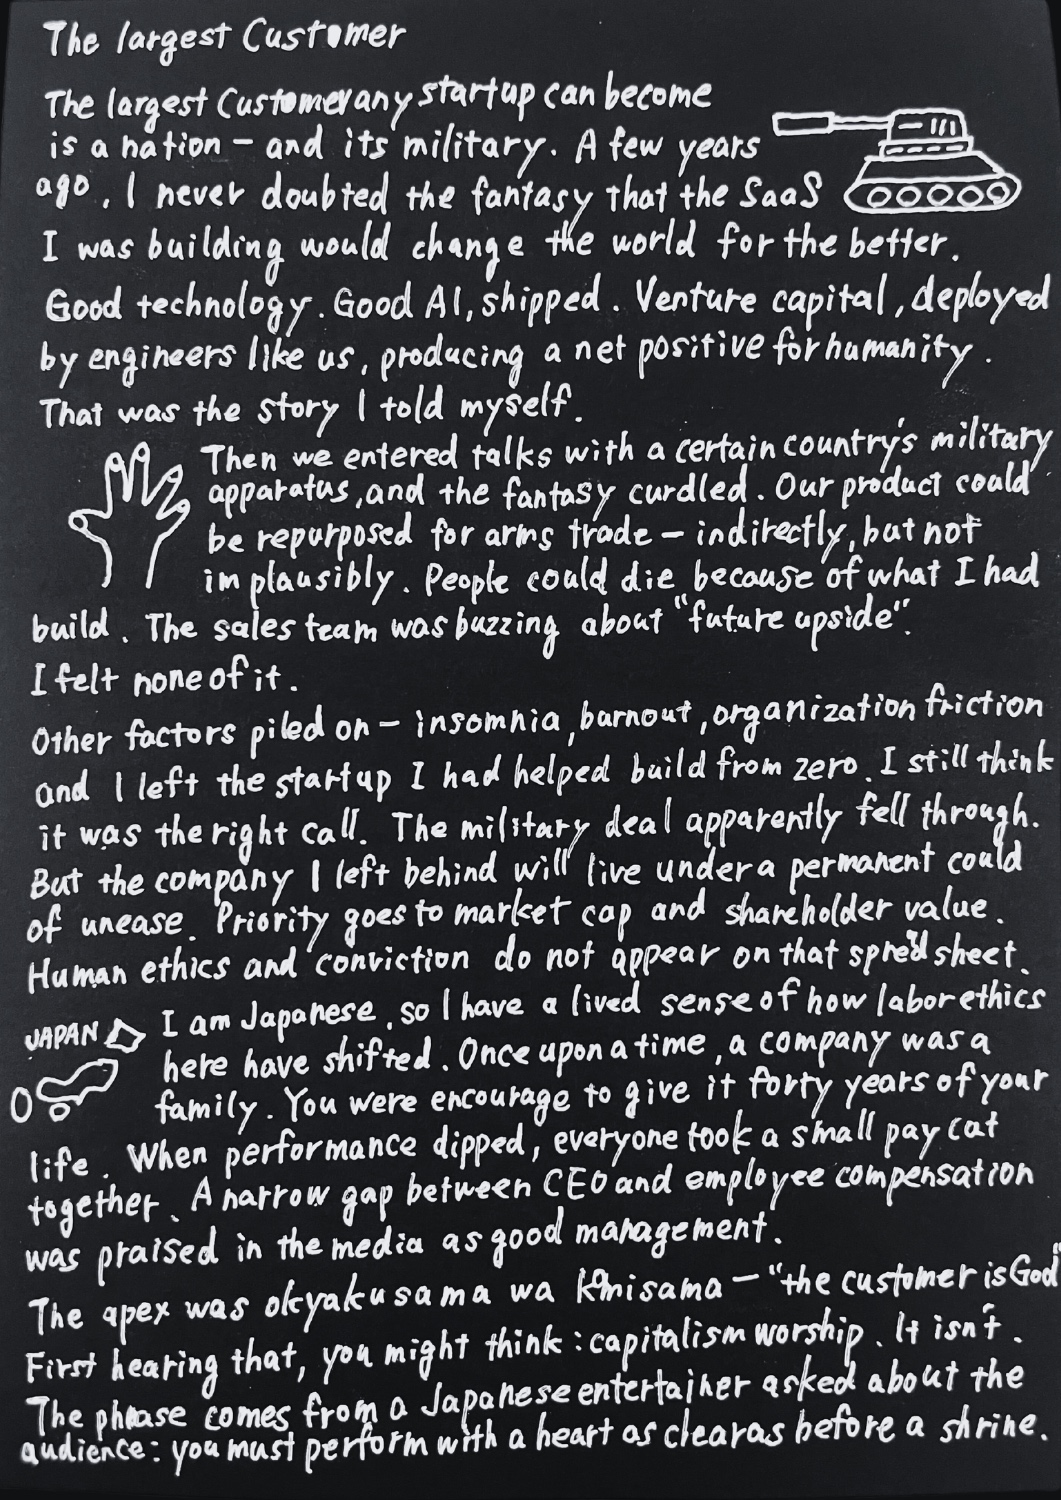 The largest Customer
The largest Customer any startup can become
is a nation – and its military. A few years
ago, I never doubted the fantasy that the SaaS
I was building would change the world for the better.
Good technology. Good AI, shipped. Venture capital, deployed
by engineers like us, producing a net positive for humanity.
That was the story I told myself.
Then we entered talks with a certain country's military
apparatus, and the fantasy curdled. Our product could
be repurposed for arms trade – indirectly, but not
implausibly. People could die because of what I had
build. The sales team was buzzing about "future upside".
I felt none of it.
Other factors piled on – insomnia, burnout, organization friction
and I left the startup I had helped build from zero. I still think
it was the right call. The military deal apparently fell through.
But the company I left behind will live under a permanent could
of unease. Priority goes to market cap and shareholder value.
Human ethics and conviction do not appear on that spredsheet.
JAPAN
I am Japanese, so I have a lived sense of how labor ethics
here have shifted. Once upon a time, a company was a
family. You were encourage to give it forty years of your
life. When performance dipped, everyone took a small pay cat
together. A narrow gap between CEO and employee compensation
was praised in the media as good management.
The apex was okyakusama wa kamisama – "the customer is God"
First hearing that, you might think: capitalism worship. It isn't.
The phrase comes from a Japanese entertainer asked about the
audience: you must perform with a heart as clear as before a shrine.